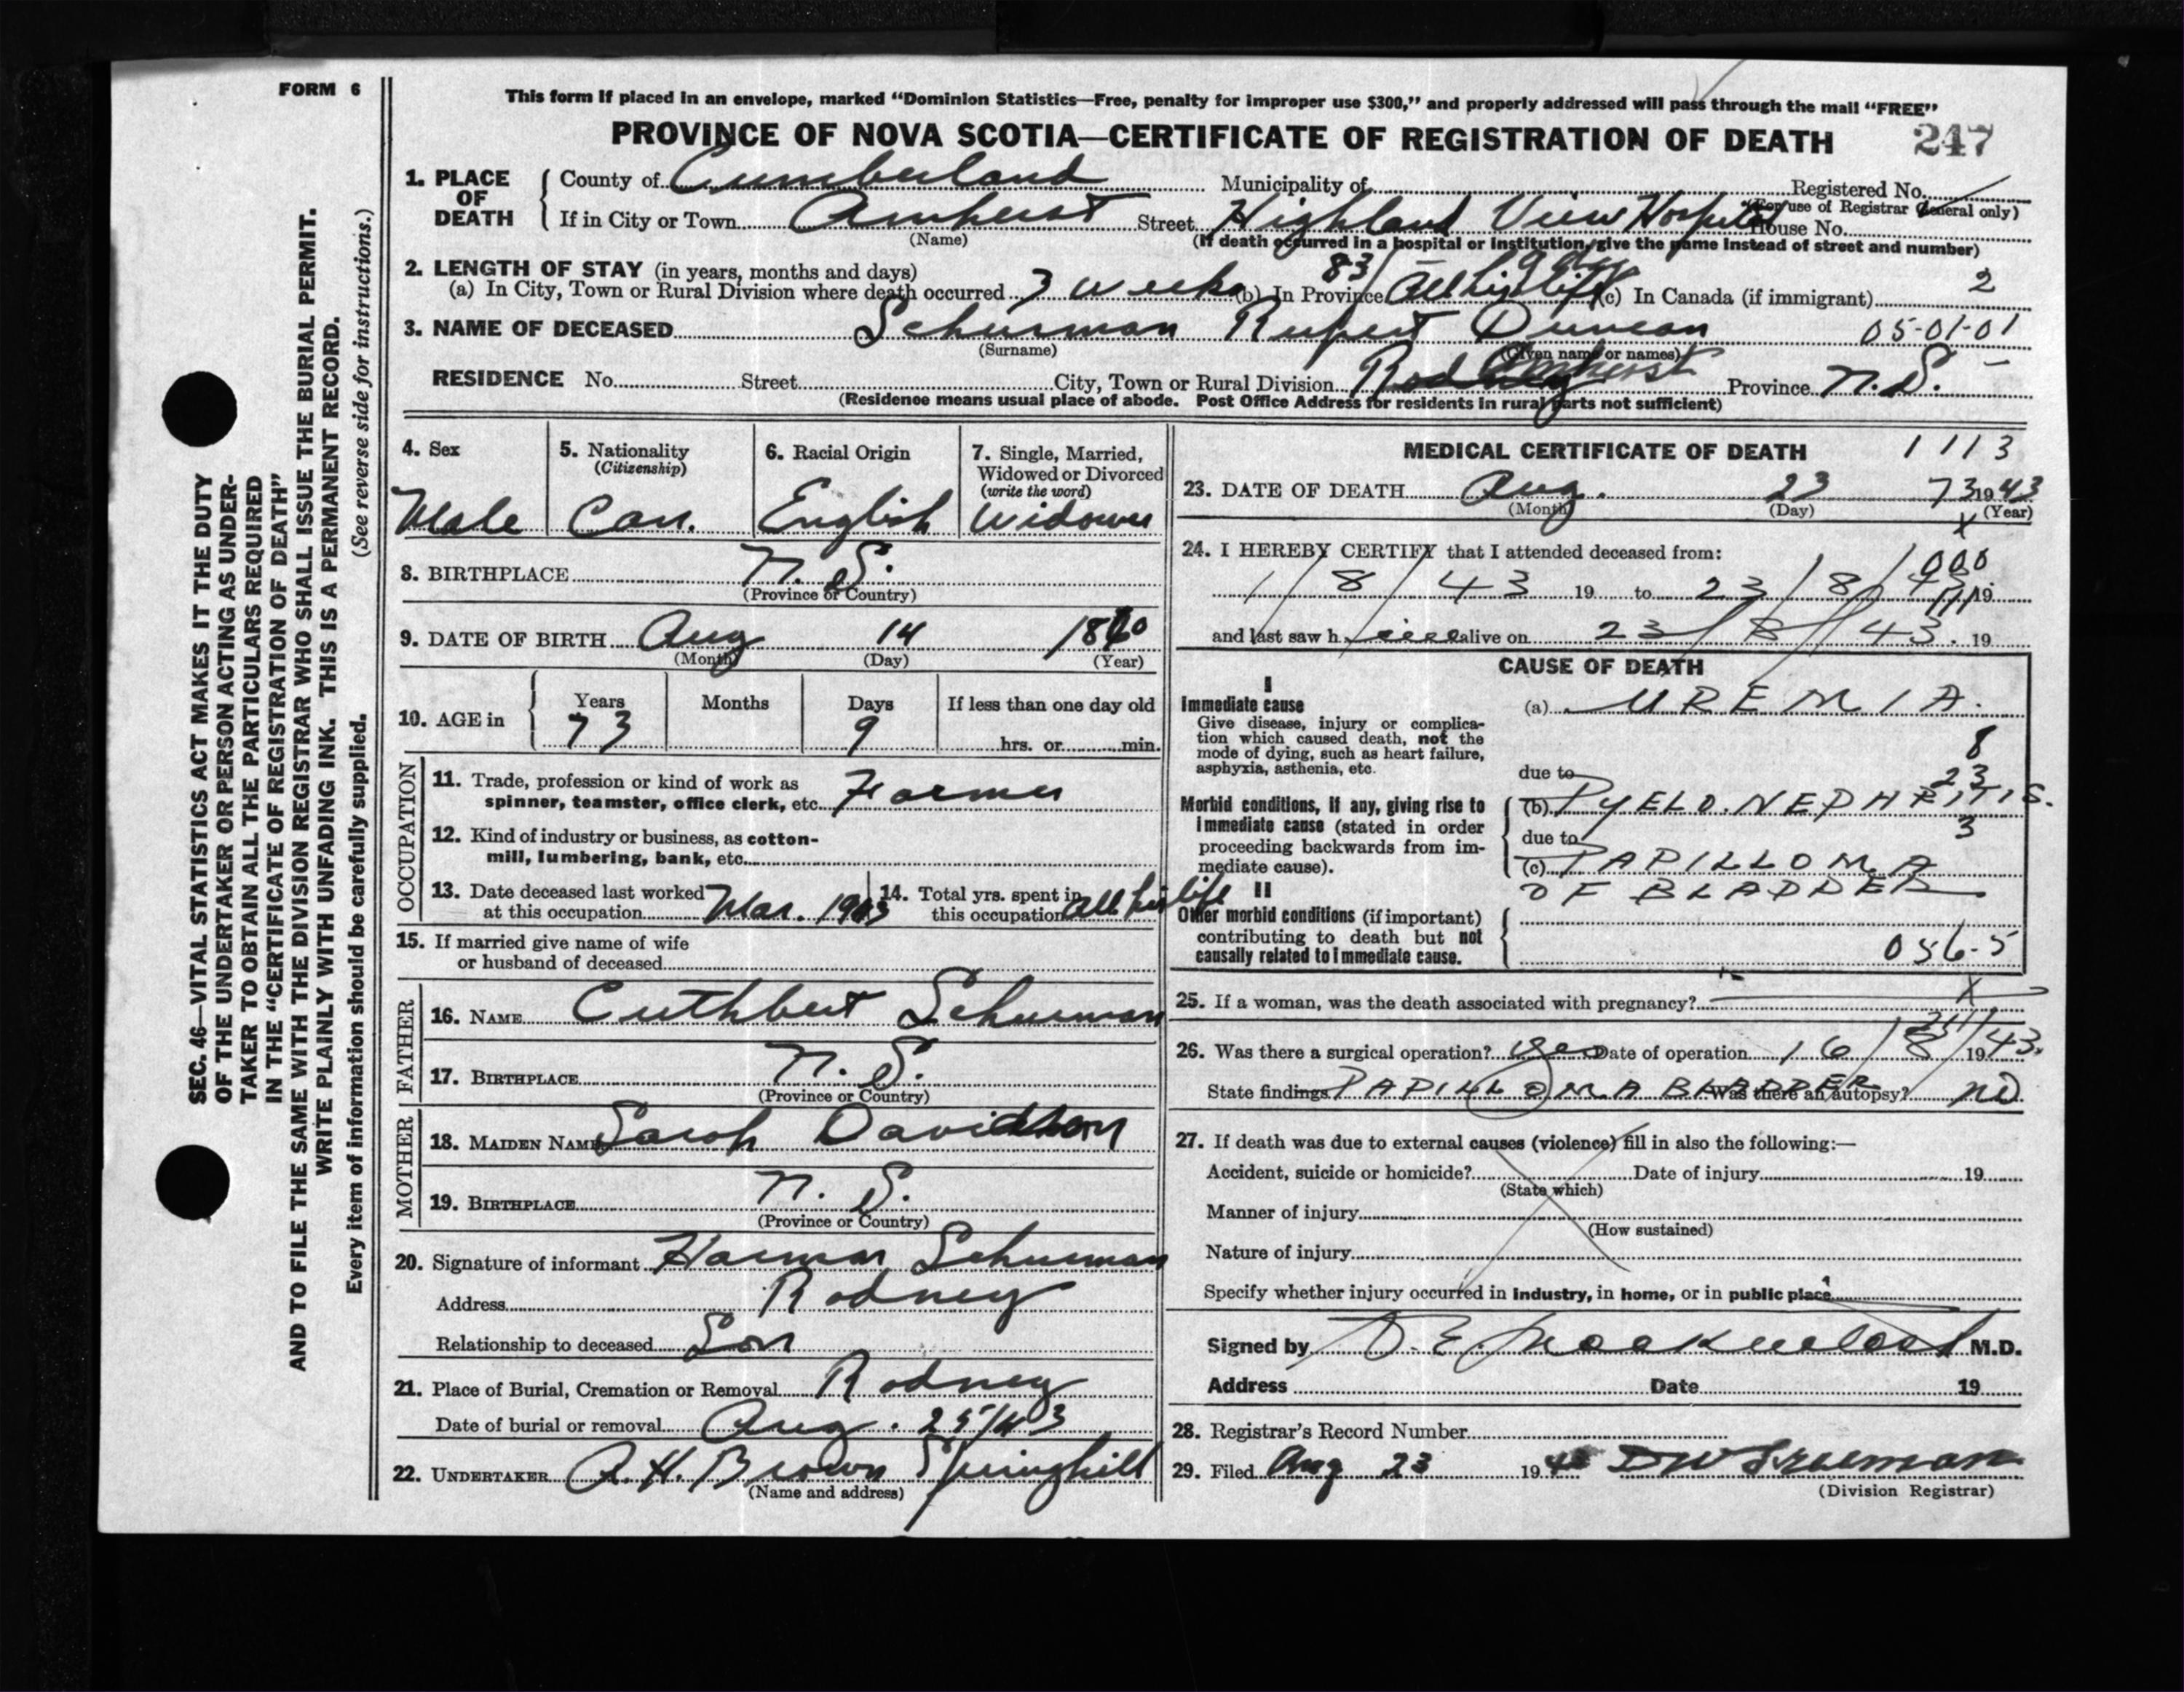 FORM 6
This form if placed in an envelope, marked "Dominion Statistics—Free, penalty for improper use $300," and properly addressed will pass through the mail "FREE"
PROVINCE OF NOVA SCOTIA—CERTIFICATE OF REGISTRATION OF DEATH 247
SEC. 46—VITAL STATISTICS ACT MAKES IT THE DUTY
OF THE UNDERTAKER OR PERSON ACTING AS UNDER-
TAKER TO OBTAIN ALL THE PARTICULARS REQUIRED
IN THE "CERTIFICATE OF REGISTRATION OF DEATH"
AND TO FILE THE SAME WITH THE DIVISION REGISTRAR WHO SHALL ISSUE THE BURIAL PERMIT.
WRITE PLAINLY WITH UNFADING INK. THIS IS A PERMANENT RECORD.
Every item of information should be carefully supplied. (See reverse side for instructions.)
1. PLACE OF DEATH
County of Cumberland Municipality of Registered No.
(For use of Registrar General only)
If in City or Town Amherst Street Highland View Hospital House No.
(Name) (If death occurred in a hospital or institution, give the name instead of street and number)
2. LENGTH OF STAY (in years, months and days) 83
(a) In City, Town or Rural Division where death occurred 3 weeks (b) In Province All his life (c) In Canada (if immigrant) 2
3. NAME OF DECEASED Schurman Rupert Duncan 05-01-01
(Surname) (Given name or names)
RESIDENCE No. Street City, Town or Rural Division Rodney Amherst Province N.S.
(Residence means usual place of abode. Post Office Address for residents in rural parts not sufficient)
4. Sex Male
5. Nationality (Citizenship) Can.
6. Racial Origin English
7. Single, Married, Widowed or Divorced (write the word) Widower
8. BIRTHPLACE N. S.
(Province or Country)
9. DATE OF BIRTH Aug 14 1870
(Month) (Day) (Year)
10. AGE in Years 73 Months Days 9 If less than one day old hrs. or min.
OCCUPATION
11. Trade, profession or kind of work as
spinner, teamster, office clerk, etc. Farmer
12. Kind of industry or business, as cotton-
mill, lumbering, bank, etc.
13. Date deceased last worked
at this occupation Mar. 1943
14. Total yrs. spent in
this occupation all his life
15. If married give name of wife
or husband of deceased
FATHER
16. NAME Cuthbert Schurman
17. BIRTHPLACE N. S.
(Province or Country)
MOTHER
18. MAIDEN NAME Sarah Davidson
19. BIRTHPLACE N. S.
(Province or Country)
20. Signature of informant Harmon Schurman
Address Rodney
Relationship to deceased Son
21. Place of Burial, Cremation or Removal Rodney
Date of burial or removal Aug. 25/43
22. UNDERTAKER A. H. Brown Springhill
(Name and address)
MEDICAL CERTIFICATE OF DEATH 1 1 1 3
23. DATE OF DEATH Aug. 23 73 1943
(Month) (Day) (Year)
X
24. I HEREBY CERTIFY that I attended deceased from:
000
1/8/43 19 to 23/8/43 19
and last saw h im alive on 23/8/43. 19
CAUSE OF DEATH
I
Immediate cause
Give disease, injury or complica-
tion which caused death, not the
mode of dying, such as heart failure,
asphyxia, asthenia, etc.
(a) UREMIA.
8
due to 23
Morbid conditions, if any, giving rise to
immediate cause (stated in order
proceeding backwards from im-
mediate cause).
(b) PYELO.NEPHRITIS.
due to 3
(c) PAPILLOMA
OF BLADDER
II
Other morbid conditions (if important)
contributing to death but not
causally related to immediate cause.
056-5
25. If a woman, was the death associated with pregnancy? X
26. Was there a surgical operation? yes Date of operation 16/8/1943.
State findings PAPILLOMA BLADDER Was there an autopsy? no
27. If death was due to external causes (violence) fill in also the following:—
Accident, suicide or homicide? Date of injury 19
(State which)
Manner of injury
(How sustained)
Nature of injury
Specify whether injury occurred in industry, in home, or in public place
Signed by M.D.
Address Date 19
28. Registrar's Record Number
29. Filed Aug 23 19
(Division Registrar)